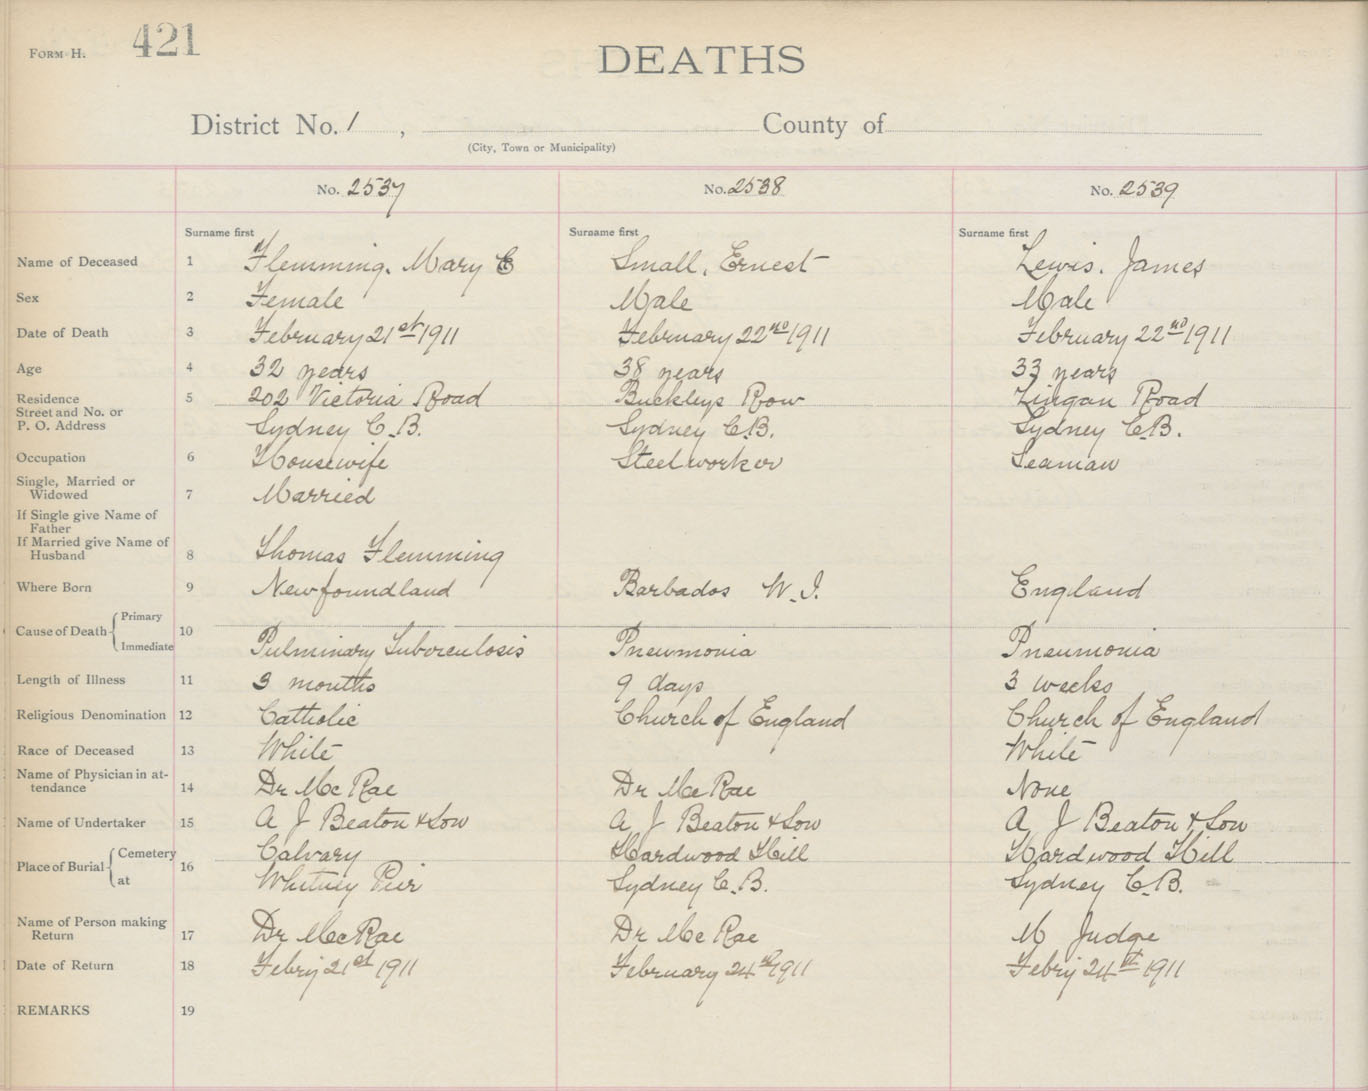 Form H. 421
DEATHS
District No. 1 , County of
(City, Town or Municipality)
No. 2537 No. 2538 No. 2539
Surname first Surname first Surname first
Name of Deceased 1 Flemming, Mary E Small, Ernest Lewis, James
Sex 2 Female Male Male
Date of Death 3 February 21st 1911 February 22nd 1911 February 22nd 1911
Age 4 32 years 38 years 33 years
Residence 5 202 Victoria Road Buckleys Row Lingan Road
Street and No. or
P. O. Address Sydney C.B. Sydney C.B. Sydney C.B.
Occupation 6 Housewife Steelworker Seaman
Single, Married or
Widowed 7 Married
If Single give Name of
Father
If Married give Name of
Husband 8 Thomas Flemming
Where Born 9 Newfoundland Barbados W.I. England
Cause of Death Primary 10
Immediate Pulminary Tuberculosis Pneumonia Pneumonia
Length of Illness 11 3 months 9 days 3 weeks
Religious Denomination 12 Catholic Church of England Church of England
Race of Deceased 13 White White
Name of Physician in at-
tendance 14 Dr McRae Dr McRae None
Name of Undertaker 15 A J Beaton & Son A J Beaton & Son A J Beaton & Son
Place of Burial Cemetery 16 Calvary Hardwood Hill Hardwood Hill
at Whitney Pier Sydney C.B. Sydney C.B.
Name of Person making
Return 17 Dr McRae Dr McRae M Judge
Date of Return 18 Febry 21st 1911 February 24th 1911 Febry 24th 1911
REMARKS 19